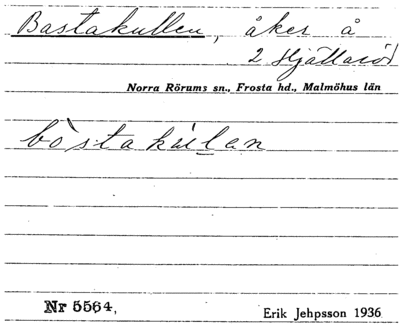 Bastakullen, åker å
2 Hjällaröd
Norra Rörums sn., Frosta hd., Malmöhus län
bòstakúlan
Nr 5564,
Erik Jehpsson 1936